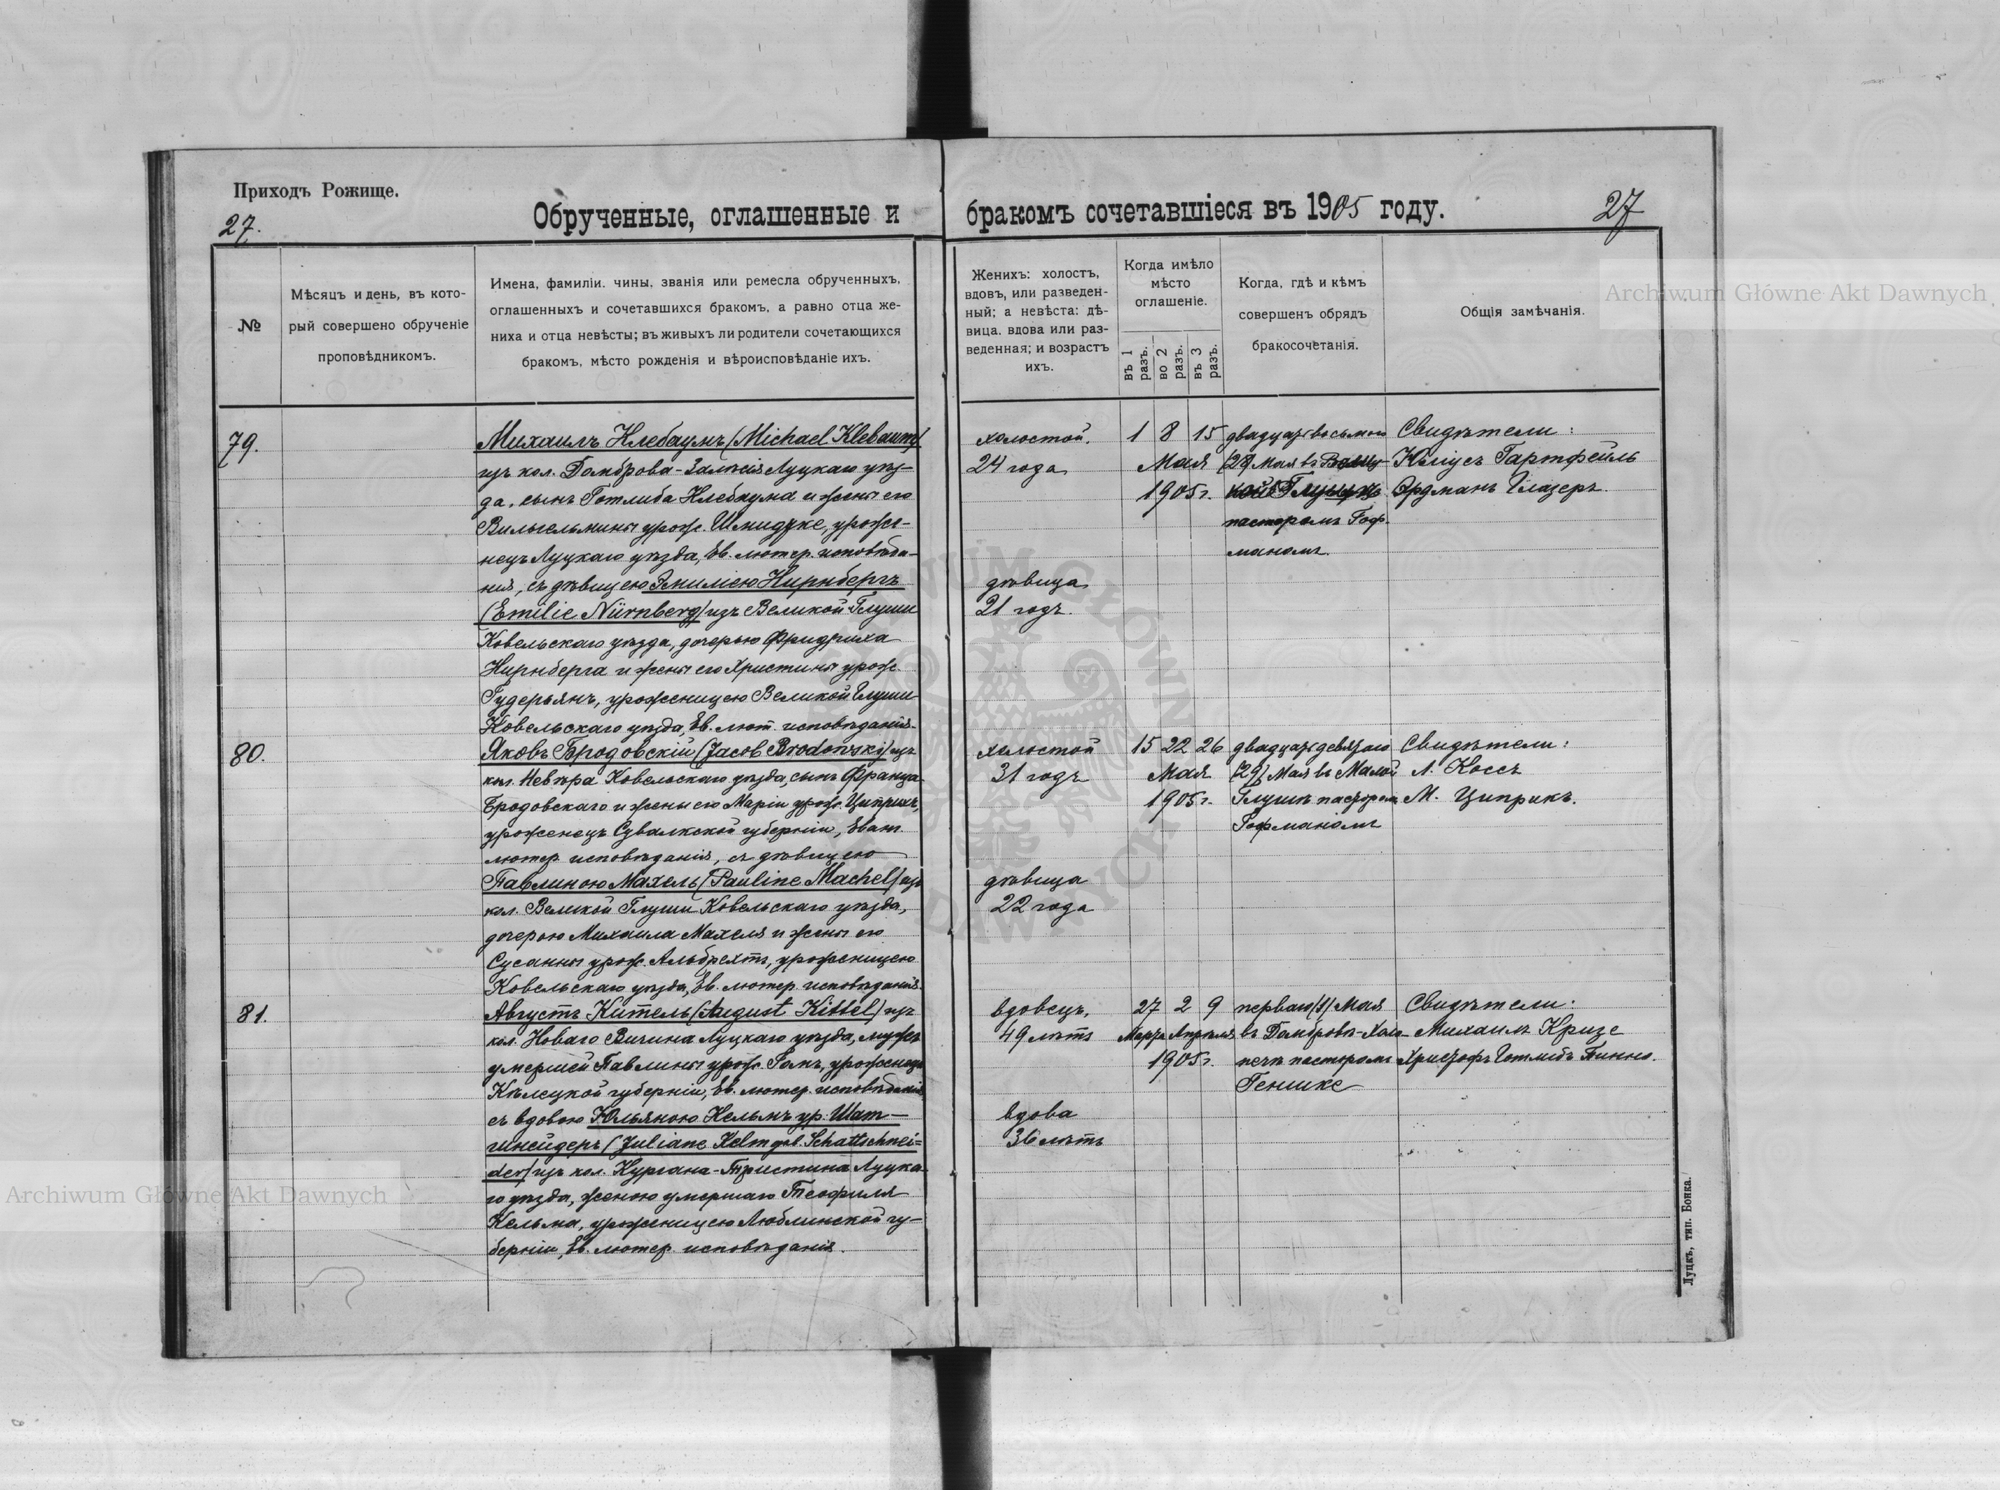 Приходъ Рожище.
27.
Обрученные, оглашенные и
бракомъ сочетавшіеся въ 1905 году.
27
№
Мѣсяцъ и день, въ кото-
рый совершено обрученіе
проповѣдникомъ.
Имена, фамиліи. чины, званія или ремесла обрученныхъ,
оглашенныхъ и сочетавшихся бракомъ, а равно отца же-
ниха и отца невѣсты; въ живыхъ ли родители сочетающихся
бракомъ, мѣсто рожденія и вѣроисповѣданіе ихъ.
Женихъ: холостъ,
вдовъ, или разведен-
ный; а невѣста: дѣ-
вица. вдова или раз-
веденная; и возрастъ
ихъ.
Когда имѣло
мѣсто
оглашеніе.
въ 1 разъ.
во 2 разъ.
въ 3 разъ.
Когда, гдѣ и кѣмъ
совершенъ обрядъ
бракосочетанія.
Общія замѣчанія.
79.
Михаилъ Клебаумъ (Michael Klebaum)
изъ кол. Домброва-Залѣсія Луцкаго уѣз-
да, сынъ Готлиба Клебаума и жены его
Вильгельмины урож. Шмидтке, уроже-
нецъ Луцкаго уѣзда, Ев. лютер. исповѣда-
нія, съ дѣвицею Эмиліею Нирнбергъ
(Emilie Nürnberg) изъ Великой Глуши
Ковельскаго уѣзда, дочерью Фридриха
Нирнберга и жены его Христины урож.
Гудерьянъ, уроженицею Великой Глуши
Ковельскаго уѣзда, Ев. лют. исповѣданія.
холостой.
24 года
дѣвица
21 годъ.
1 8 15
Мая
1905 г.
двадцать восьмого
(28) Мая въ
пасторомъ Гоф-
маномъ.
Свидѣтели:
Юліусъ Гартфейль
Эрдманъ Глазеръ.
80.
Яковъ Бродовскій (Jacob Brodowski) изъ
кол. Невѣра Ковельскаго уѣзда, сынъ Франца
Бродовскаго и жены его Маріи урож. Циприкъ,
уроженецъ Сувалкской губерніи, Еванг.
лютер. исповѣданія, съ дѣвицею
Павлиною Махель (Pauline Machel) изъ
кол. Великой Глуши Ковельскаго уѣзда,
дочерью Михаила Махеля и жены его
Сусанны урож. Альбрехтъ, уроженицею
Ковельскаго уѣзда, Ев. лютер. исповѣданія.
холостой
31 годъ
дѣвица
22 года
15 22 26
Мая
1905 г.
двадцать девятаго
(29) Мая въ Малой
Глушѣ пасторомъ
Гофманомъ
Свидѣтели:
Л. Коссъ
М. Циприкъ.
81.
Августъ Китель (August Kittel) изъ
кол. Новаго Вичина Луцкаго уѣзда, мужъ
умершей Павлины урож. Гамъ, уроженецъ
Кѣлецкой губерніи, Ев. лютер. исповѣданія
съ вдовою Юльяною Кельмъ ур. Шат-
шнейдеръ (Juliane Kelm geb. Schattschnei=
der) изъ кол. Кургана-Тристина Луцка-
го уѣзда, женою умершаго Теофиля
Кельма, уроженицею Люблинской гу-
берніи, Ев. лютер. исповѣданія.
вдовецъ,
49 лѣтъ
вдова
36 лѣтъ
27 2 9
Марта Апрѣля
1905 г.
перваго (1) Мая
въ Домбровѣ-Холо-
печѣ пасторомъ
Генике
Свидѣтели:
Михаилъ Кризе
Христофъ Готлибъ Тинно.
Луцкъ, тип. Бонка.
Archiwum Główne Akt Dawnych
Archiwum Główne Akt Dawnych